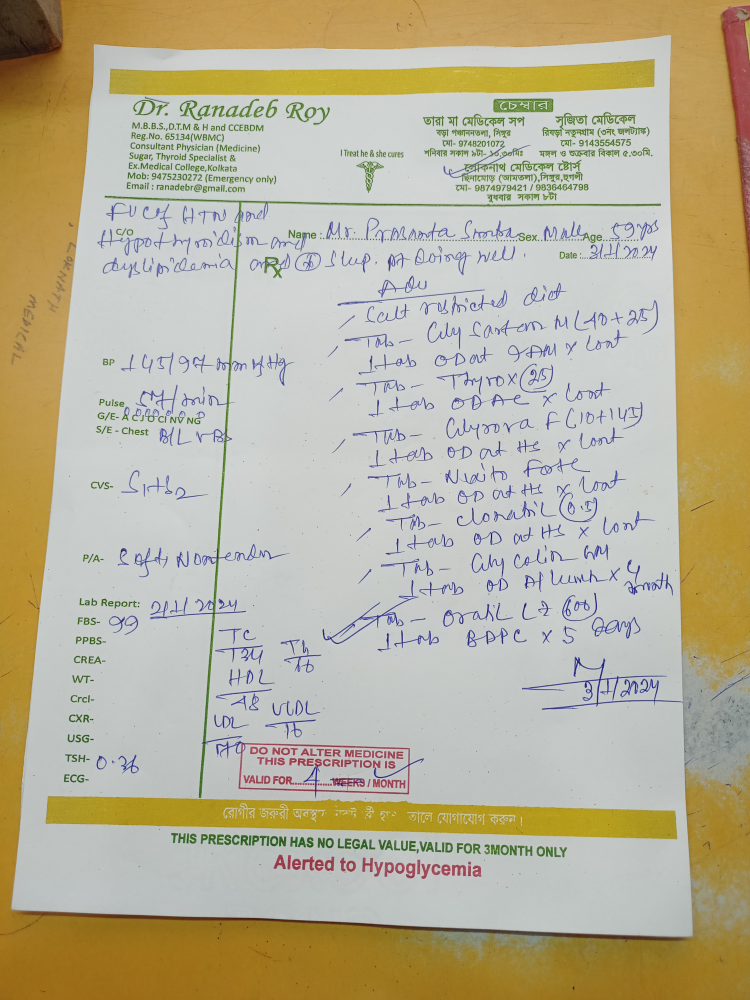 Dr. Ranadeb Roy
M.B.B.S.,D.T.M & H and CCEBDM
Reg.No. 65134(WBMC)
Consultant Physician (Medicine)
Sugar, Thyroid Specialist &
Ex.Medical College,Kolkata
Mob: 9475230272 (Emergency only)
Email : ranadebr@gmail.com
I Treat he & she cures
চেম্বার
তারা মা মেডিকেল সপ
বড়া পঞ্চাননতলা, সিঙ্গুর
মো- 9748201072
শনিবার সকাল ৯টা- ১০.৩০মিঃ
সুজিতা মেডিকেল
রিষড়া নতুনগ্রাম (৩নং জলট্যাঙ্ক)
মো- 9143554575
মঙ্গল ও শুক্রবার বিকাল ৫.৩০মি.
লোকনাথ মেডিকেল ষ্টোর্স
ছিনামোড় (আমতলা),সিঙ্গুর,হুগলী
মো- 9874979421 / 9836464798
বুধবার সকাল ৮টা
C/O
HTN and
Hypothyroidism and
dyslipidemia and sleep. pt Doing well.
Name : Mr. Prasanta Sex Male Age 59 yrs
Rx
Date : 3/1/2024
Adv
Salt restricted diet
Tab - Glysartem M (40+25)
1 tab OD at 9AM x cont
Tab - Thyrox (25)
1 tab OD AC x cont
Tab - Glyrova F (10+145)
1 tab OD at HS x cont
Tab - Forte
1 tab OD at HS x cont
Tab - (0.5)
1 tab OD at HS x cont
Tab -
1 tab OD A/Lunch x month
Tab - (600)
1 tab BDPC x 5 Days
3/1/2024
BP 145/97 mm of Hg
Pulse 57/min
G/E- A C J O CI NV NG
S/E - Chest B/L VBS
CVS- S1+S2
P/A- Soft, Nontender
Lab Report: 2/1/2024
FBS- 99
PPBS-
CREA-
WT-
Crcl-
CXR-
USG-
TSH- 0.36
ECG-
TC
134
HDL
48
LDL
VLDL
16
DO NOT ALTER MEDICINE
THIS PRESCRIPTION IS
VALID FOR WEEKS / MONTH
রোগীর জরুরী তালে যোগাযোগ করুন।
THIS PRESCRIPTION HAS NO LEGAL VALUE,VALID FOR 3MONTH ONLY
Alerted to Hypoglycemia
LOKNATH
MEDICAL